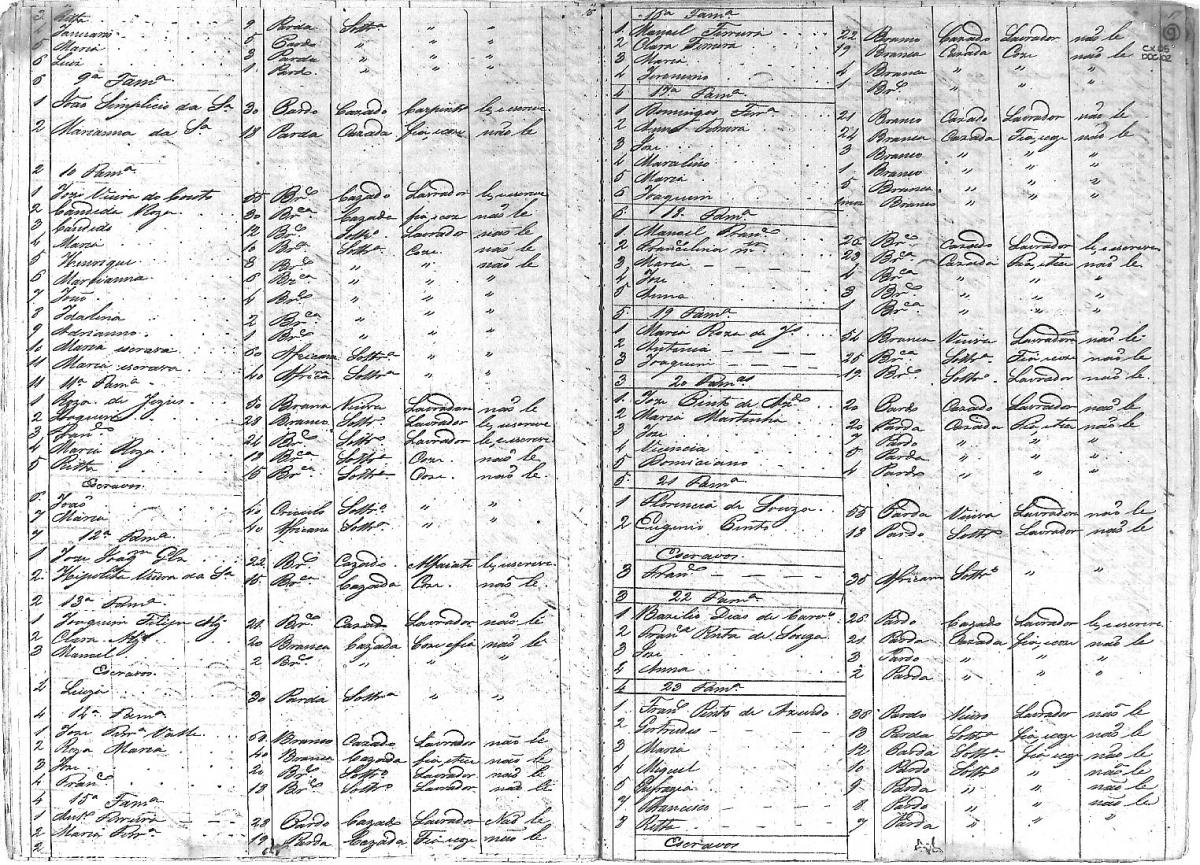 3 Rita 9 Parda Soltrª " "
Januaria 5 Parda " " "
5 Maria 3 Parda " " "
6 Luiz 1 Pardo " " "
6 9ª Famª
1 João Simplicio da Sª 30 Pardo Cazado Carpintº le, escreve
2 Marianna da Sª 18 Parda Cazada fia, coze não le
2 10 Famª
1 Joze Vieira do Couto 55 Brco Cazado Lavrador le, escreve
2 Candida Roza 30 Brca Cazada fia, coze não le
3 Candido 12 Brco Soltrº Lavrador não le
4 Maria 10 Brca Soltrª Coze não le
5 Henrique 8 Brco " " não le
6 Marianna 6 Brca " " "
7 João 4 Brco " " "
8 Idalina 2 Brca " " "
9 Adrianno 1 Brco " " "
10 Maria escrava 60 Africana Soltrª " "
11 Maria escrava 40 Africª Soltrª " "
11 11ª Famª
1 Roza de Jezus 50 Branca Viuva Lavradora não le
2 Joaquim 28 Branco Soltrº Lavrador le, escreve
3 Franco 24 Brco Soltrº Lavrador le, escreve
4 Maria Roza 19 Brca Soltrª Coze não le
5 Ritta 15 Brca Soltrª Coze não le
Escravos
6 João 40 Crioulo Soltrº " "
7 Maria 40 Africana Soltrª " "
7 12ª Famª
1 Joze 22 Brco Cazado le, escreve
2 Hipolita Vieira da Sª 15 Brca Cazada Coze não le
2 13ª Famª
1 Joaquim Felipe 21 Brco Cazado Lavrador não le
2 Clara 20 Branca Cazada Coze e fia não le
3 Manoel 2 Brco " " "
Escravos
4 Luiza 30 Parda Soltrª " "
4 14ª Famª
1 Joze 50 Branco Cazado Lavrador não le
2 Roza Maria 40 Branca Cazada fia, não le
3 Joze 20 Brco Soltrº Lavrador não le
4 Franco 18 Brco Soltrº Lavrador não le
4 15ª Famª
1 Antº Ferreira 28 Pardo Cazado Lavrador Não le
2 Maria Ferª 19 Parda Cazada Fia coze não le
2
16ª Famª
1 Manoel Ferreira 22 Branco Cazado Lavrador não le
2 Clara Ferreira 19 Branca Cazada Coze não le
3 Maria 4 Branca " " "
4 Jeronimo 1 Brco " " "
4 17ª Famª
1 Domingos Ferª 21 Branco Cazado Lavrador não le
2 Anna Ferreira 24 Branca Cazada Fia, coze não le
3 Joze 3 Branco " " "
4 1 Branco " " "
5 Maria 5 Branca " " "
6 Joaquim Branco " "
6 18 Famª
1 Manoel Franco 26 Brco Cazado Lavrador le, escreve
2 Francelina 23 Brca Cazada Fia, não le
3 Maria 4 Brca " " "
4 Joze 3 Brco " " "
5 Anna 1 Brca " " "
5 19 Famª
1 Maria Roza de Jº 54 Branca Viuva Lavradora não le
2 Antonia 25 Brca Soltrª Fia, coze não le
3 Joaquim 19 Brco Soltrº Lavrador não le
3 20 Famª
1 Joze Pinto de 20 Pardo Cazado Lavrador não le
2 Maria Martinha 20 Parda Cazada Fia, não le
3 Joze 7 Pardo " " "
4 Vicencia 5 Parda " " "
5 Domiciano 4 Pardo " " "
5 21 Famª
1 Florencia de Souza 55 Parda Viuva Lavradora não le
2 Eugenio Pinto 18 Pardo Soltrº Lavrador não le
Escravos
3 Franco 35 Africano Soltrº " "
3 22 Famª
1 Bazilio Dias de 26 Pardo Cazado Lavrador le, escreve
2 Franca Rita de Souza 21 Parda Cazada fia, coze não le
3 Joze 3 Pardo " " "
4 Anna 2 Parda " " "
4 23 Famª
1 Franco Pinto de Azevedo 36 Pardo Viuvo Lavrador não le
2 Gertrudes 13 Parda Soltrª fia, coze não le
3 Maria 12 Parda Soltrª fia, coze não le
4 Miguel 10 Pardo Soltrº " não le
5 Eufrazia 9 Parda " " não le
7 Francisco 8 Pardo " " não le
8 Ritta 7 Parda " "
Escravos
CX 05
DOC 102